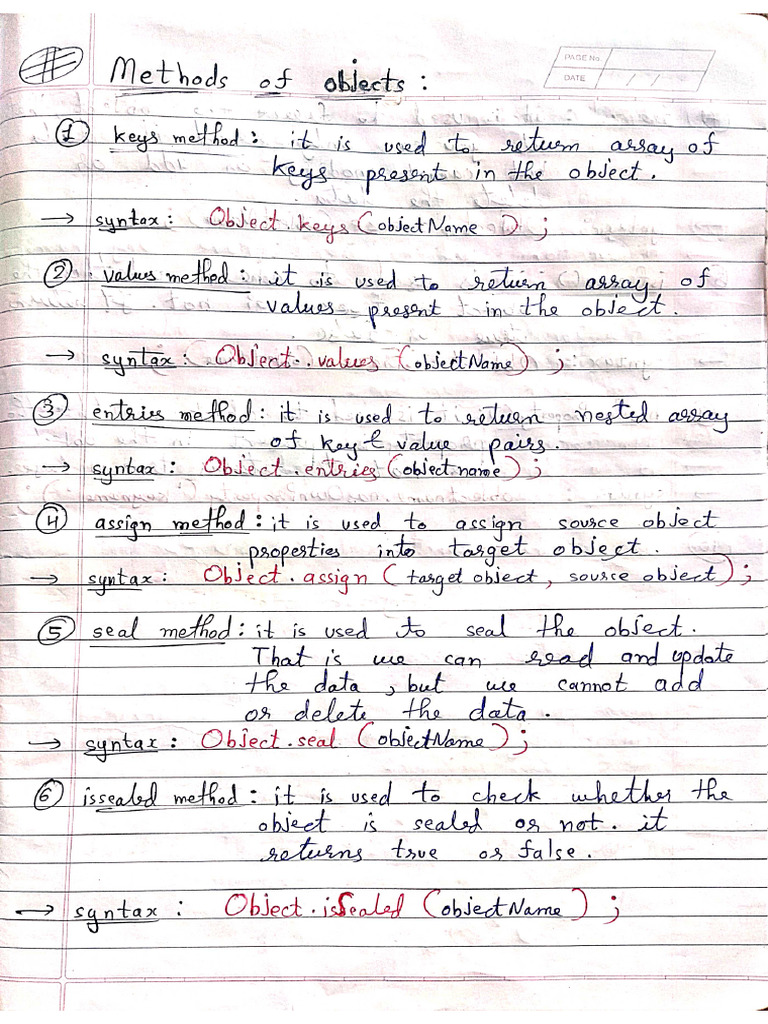 Methods of objects :
PAGE No.
DATE / /
① keys method : it is used to return array of
keys present in the object.
→ syntax : Object.keys (objectName ) ;
② values method : it is used to return array of
values present in the object.
→ syntax : Object.values (objectName) ;
③ entries method : it is used to return nested array
of key & value pairs.
→ syntax : Object.entries (object name) ;
④ assign method : it is used to assign source object
properties into target object.
→ syntax : Object.assign ( target object, source object) ;
⑤ seal method : it is used to seal the object.
That is we can read and update
the data, but we cannot add
or delete the data.
→ syntax : Object.seal (objectName) ;
⑥ issealed method : it is used to check whether the
object is sealed or not. it
returns true or false.
→ syntax : Object.isSealed (objectName) ;